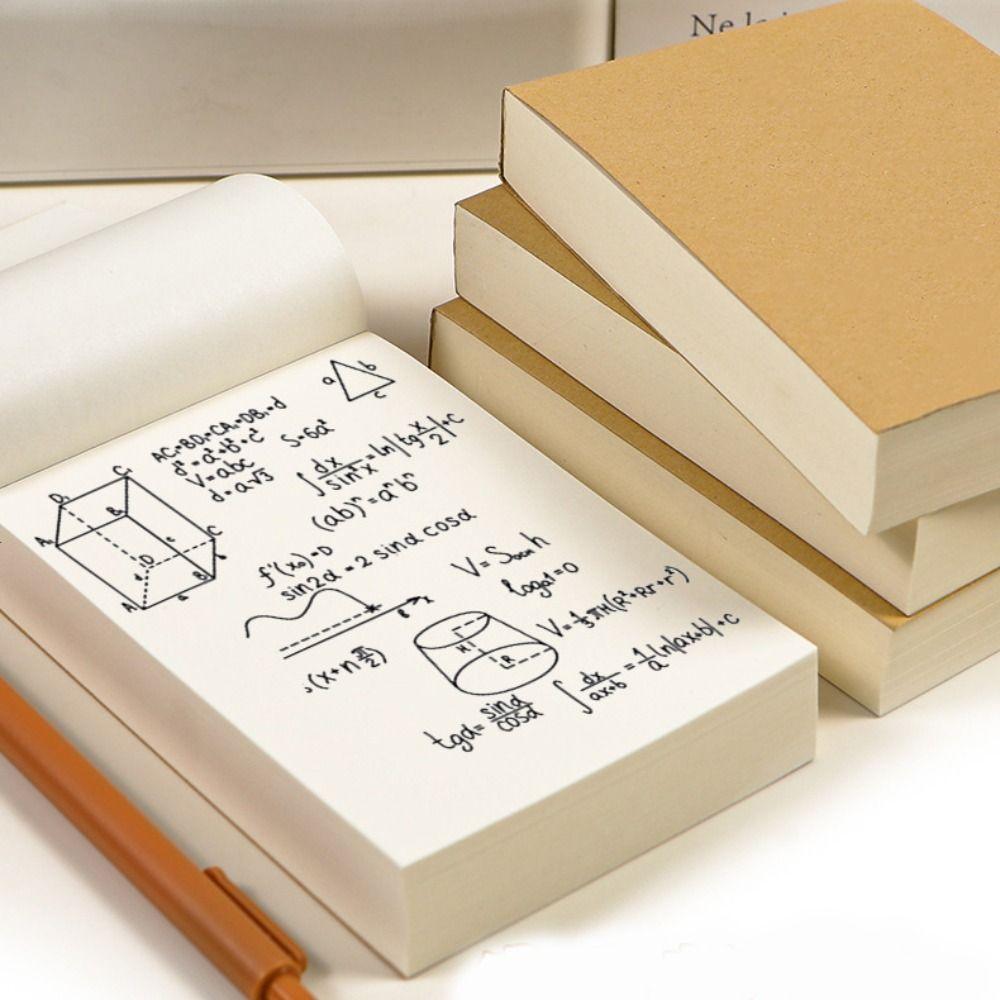 Ne
a b c
AC₁=BD₁=CA₁=DB₁=d
d²=a²+b²+c²
S=6a²
V=abc
d=a√3
∫dx/sin²x=ln|tg x/2|+C
(ab)ⁿ=aⁿbⁿ
D₁ C₁
A₁ B₁ C
D c
d B
A a
f'(x₀)=0
sin2α=2sinα cosα
V=Sосн h
logₐ1=0
x
V=1/3πH(R²+Rr+r²)
(x+n π/2)
r H R
∫dx/ax+b=1/a(ln|ax+b|+C
tgα=sinα/cosα